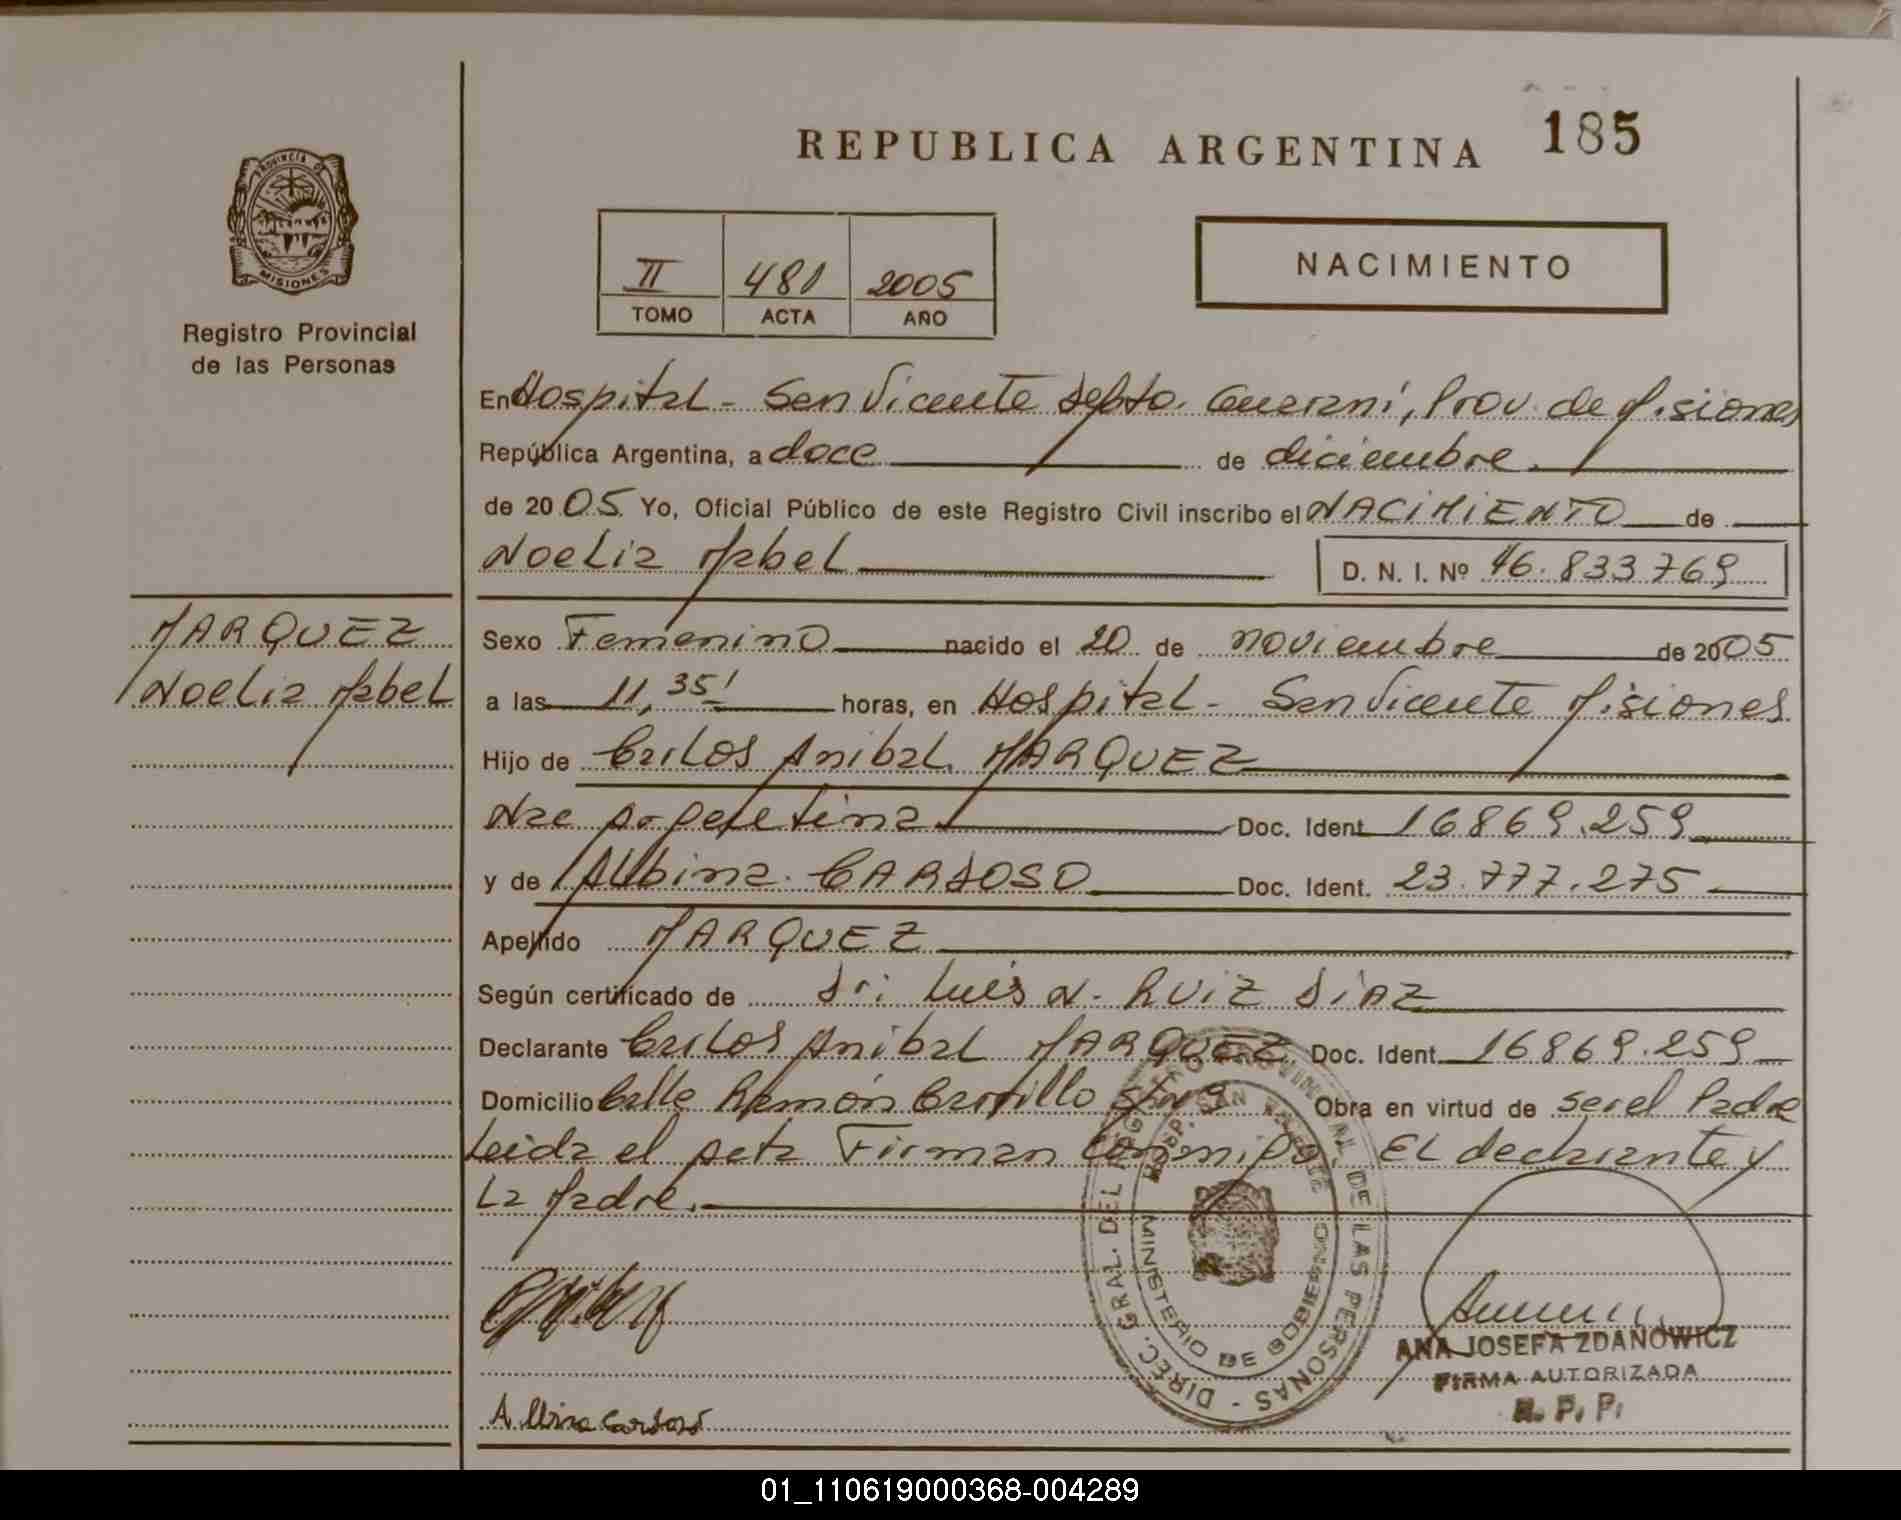 REPUBLICA ARGENTINA 185
PROVINCIA DE
MISIONES
Registro Provincial
de las Personas
II 481 2005
TOMO ACTA AÑO
NACIMIENTO
En Hospital - San Vicente Depto. Guaraní, Prov. de Misiones
República Argentina, a doce de diciembre.
de 2005 Yo, Oficial Público de este Registro Civil inscribo el NACIMIENTO de
Noelia Mabel D. N. I. Nº 46.833.769
MARQUEZ
Noelia Mabel
Sexo Femenino nacido el 20 de noviembre de 2005
a las 11,35' horas, en Hospital - San Vicente Misiones
Hijo de Carlos Anibal MARQUEZ
Nac Argentina Doc. Ident. 16869.259
y de Albina CARDOSO Doc. Ident. 23.777.275
Apellido MARQUEZ
Según certificado de Dr: Luis N. RUIZ DIAZ
Declarante Carlos Anibal MARQUEZ Doc. Ident. 16869.259
Domicilio Calle Ramón Carrillo s/nº Obra en virtud de ser el Padre
Leida el acta Firman conmigo. EL declarante y
La Madre.
DIREC. GRAL. DEL REGISTRO PROVINCIAL DE LAS PERSONAS -
HOSP. SAN VICENTE
MINISTERIO DE GOBIERNO
Albina Cardoso
ANA JOSEFA ZDANOWICZ
FIRMA AUTORIZADA
R. P. P.
01_110619000368-004289